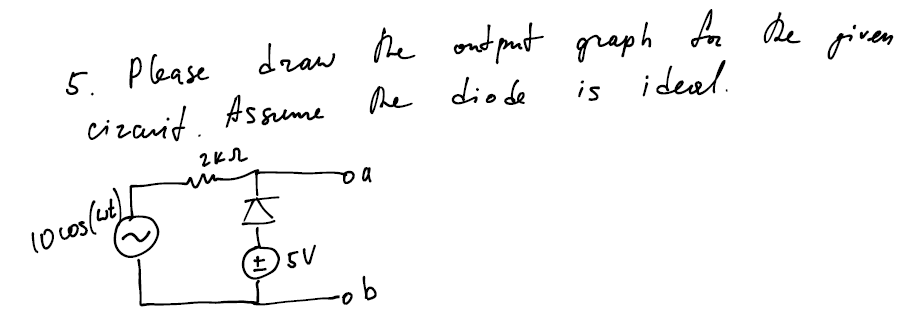 5. Please draw the output graph for the given
circuit. Assume the diode is ideal.
2KΩ
a
10 cos(ωt)
~
± 5V
b